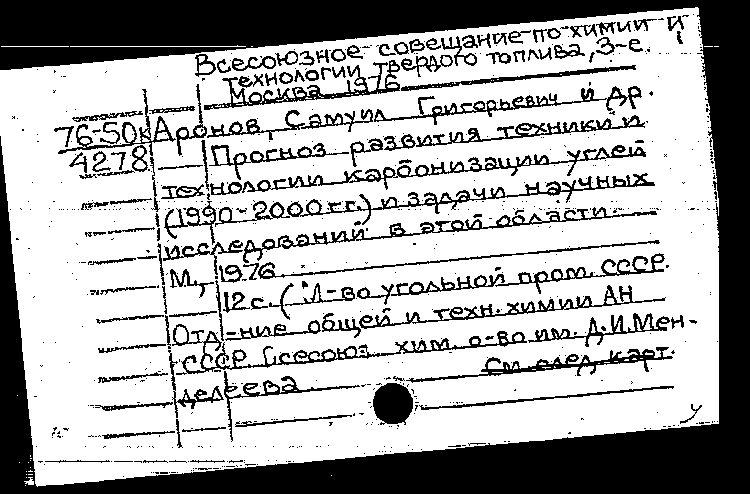 Всесоюзное совещание по химии и
технологии твердого топлива, 3-е.
Москва 1976
76-50к Аронов, Самуил Григорьевич и др.
4278 Прогноз развития техники и
технологии карбонизации углей
(1990-2000 г.г.) и задачи научных
исследований в этой области.
М., 1976.
12 с. ( -во угольной пром. СССР.
Отд-ние общей и техн. химии АН
СССР. Всесоюз. хим. о-во им. Д.И. Мен-
делеева См. след. карт.